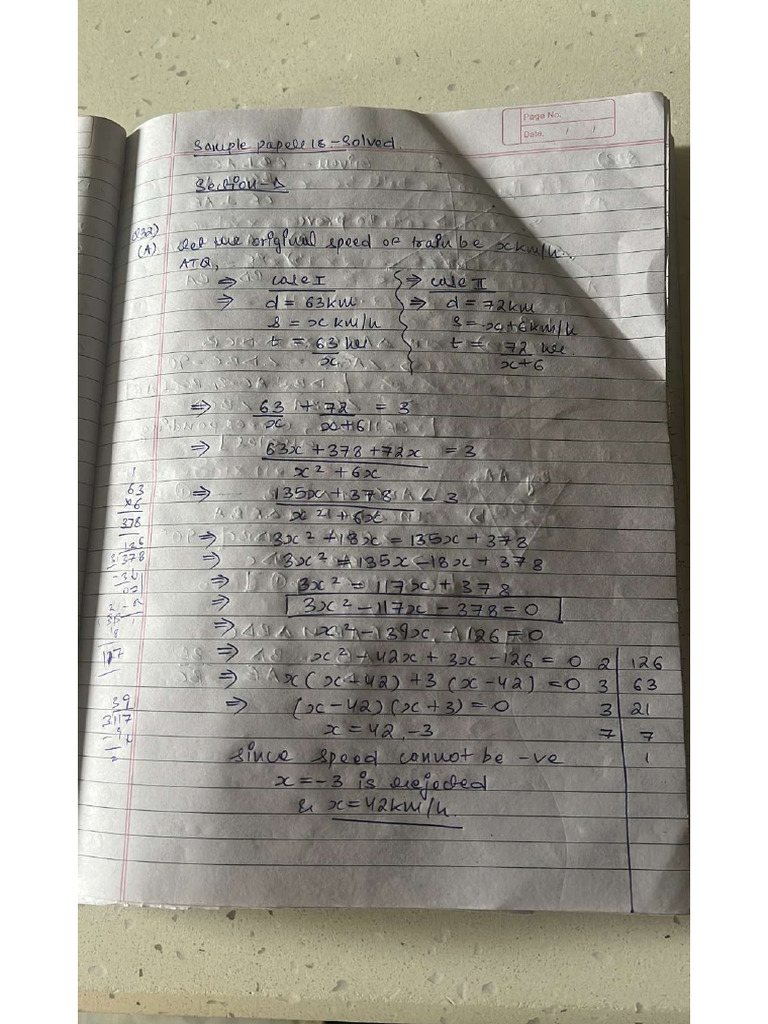 Page No.
Date. / /
Sample paper 18 - Solved
Section - A
Q32)
(A) Let the original speed of train be x km/h.
ATQ,
⇒ Case I
⇒ d = 63 km
s = x km/h
t = 63/x hr
⇒ Case II
⇒ d = 72 km
s = x+6 km/h
t = 72/x+6 hr
⇒ 63/x + 72/x+6 = 3
⇒ 63x + 378 + 72x / x² + 6x = 3
⇒ 135x + 378 / x² + 6x = 3
⇒ 3x² + 18x = 135x + 378
⇒ 3x² = 135x - 18x + 378
⇒ 3x² = 117x + 378
⇒ 3x² - 117x - 378 = 0
⇒ x² - 39x - 126 = 0
⇒ x² - 42x + 3x - 126 = 0
⇒ x(x - 42) + 3(x - 42) = 0
⇒ (x - 42)(x + 3) = 0
x = 42, -3
Since speed cannot be -ve
x = -3 is rejected
& x = 42 km/h.
2 | 126
3 | 63
3 | 21
7 | 7
1
1
63
×6
378
126
3 378
117
39
3 117